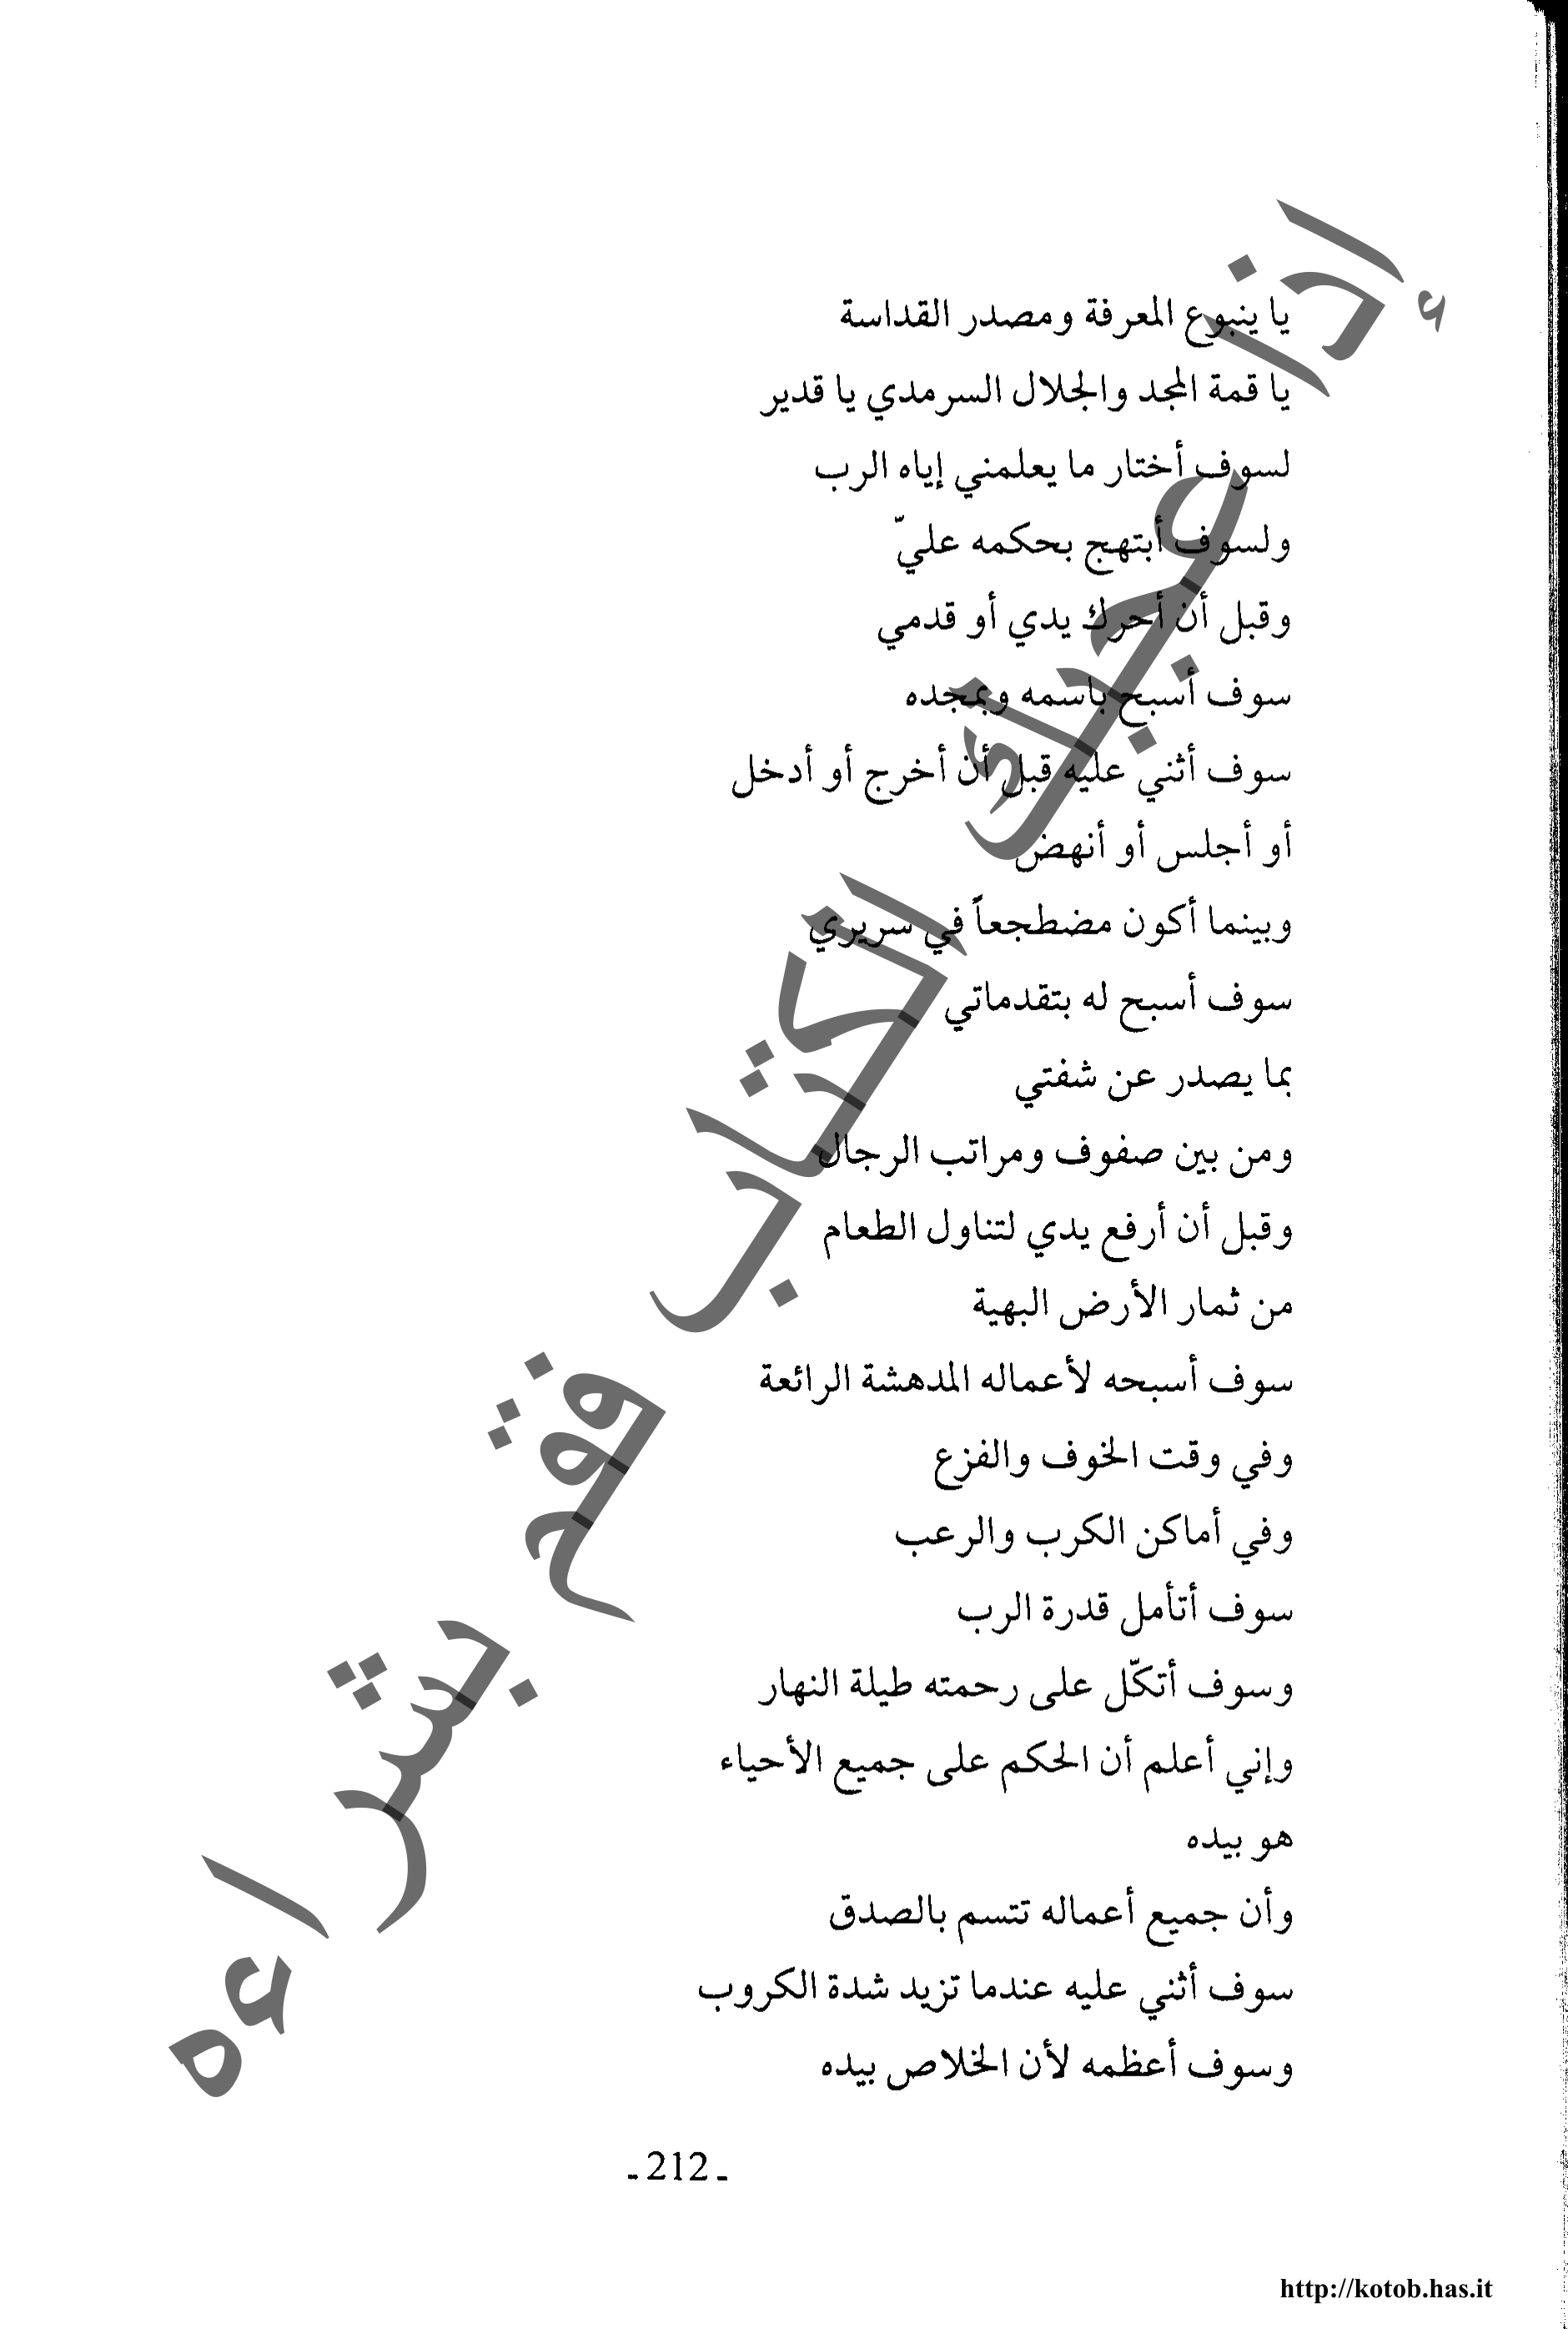 يا ينبوع المعرفة ومصدر القداسة
يا قمة المجد والجلال السرمدي يا قدير
لسوف أختار ما يعلمني إياه الرب
ولسوف أبتهج بحكمه عليّ
وقبل أن أحرك يدي أو قدمي
سوف أسبح باسمه وبمجده
سوف أثني عليه قبل أن أخرج أو أدخل
أو أجلس أو أنهض
وبينما أكون مضطجعاً في سريري
سوف أسبح له بتقدماتي
بما يصدر عن شفتي
ومن بين صفوف ومراتب الرجال
وقبل أن أرفع يدي لتناول الطعام
من ثمار الأرض البهية
سوف أسبحه لأعماله المدهشة الرائعة
وفي وقت الخوف والفزع
وفي أماكن الكرب والرعب
سوف أتأمل قدرة الرب
وسوف أتكّل على رحمته طيلة النهار
وإني أعلم أن الحكم على جميع الأحياء
هو بيده
وأن جميع أعماله تتسم بالصدق
سوف أثني عليه عندما تزيد شدة الكروب
وسوف أعظمه لأن الخلاص بيده
- 212 -
http://kotob.has.it
إذا أعجبك الكتاب فقم بشراءه